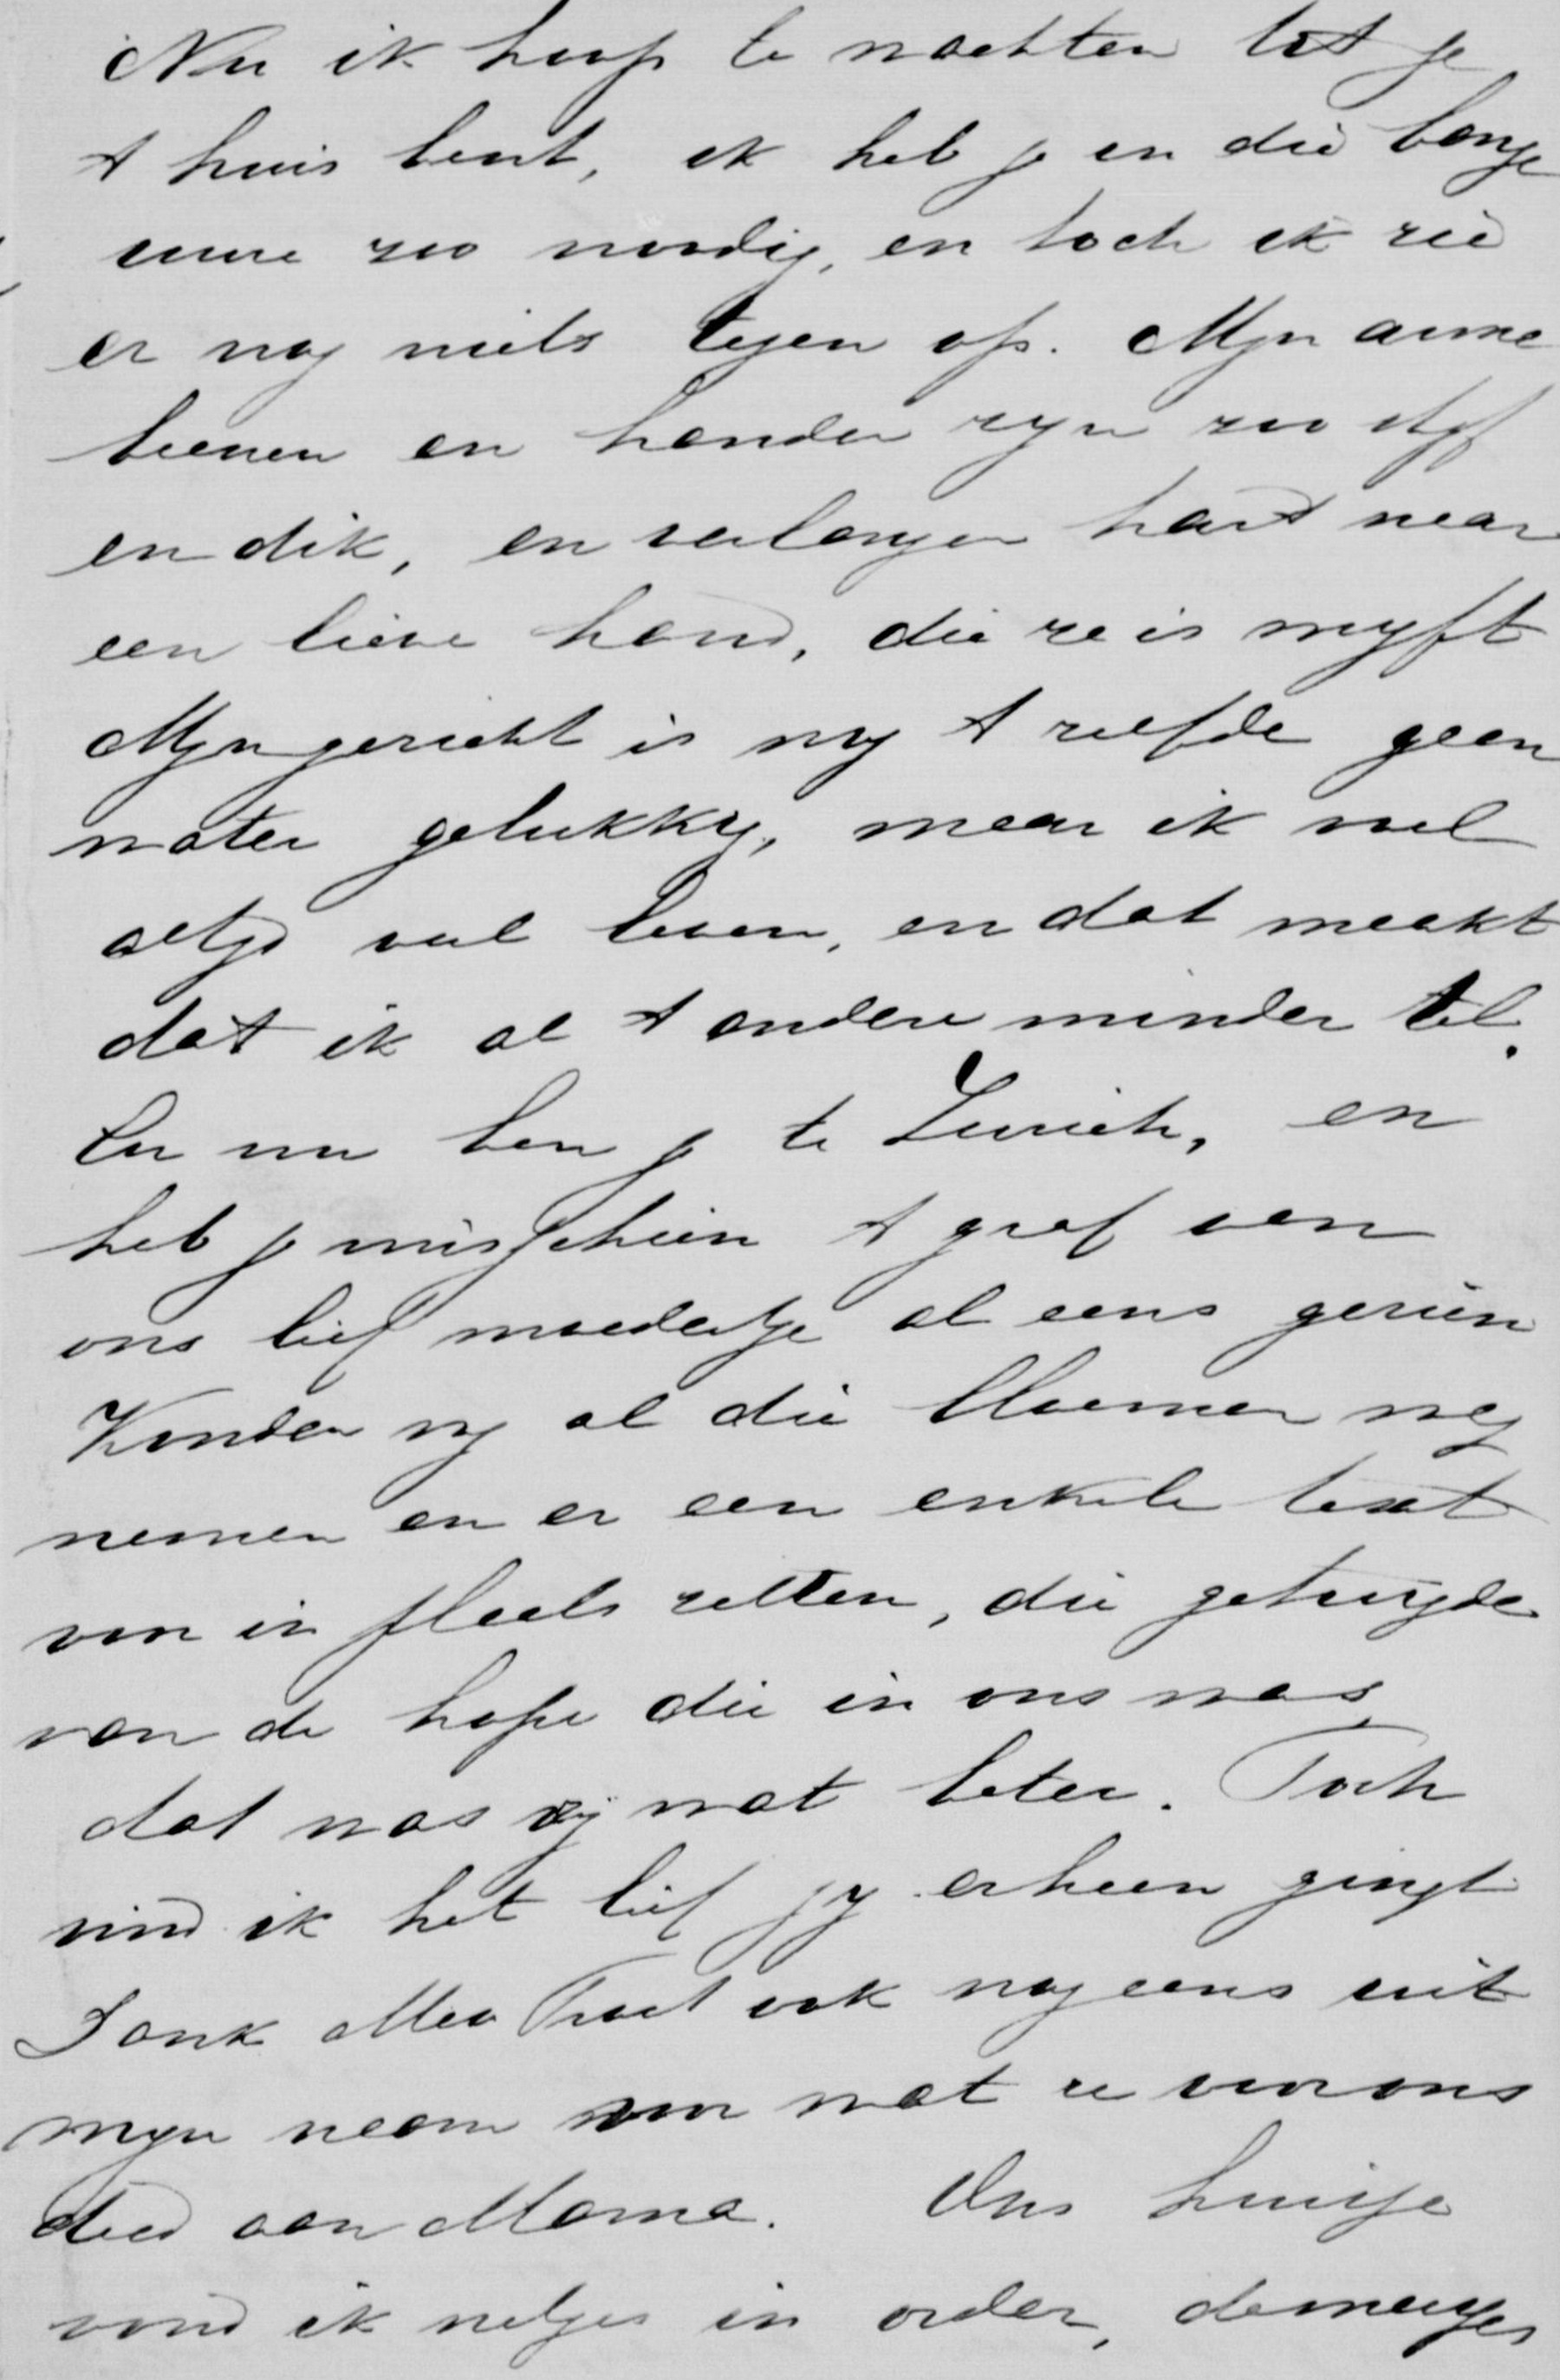 Nu ik hoop te wachten tot je
t huis bent, ik heb je in die bange
uure zoo noodig, en toch ik zie
er nog niets tegen op. Mijn arme
beenen en handen zijn zoo stijf
en dik, en verlangen hard naar
een lieve hand, die ze is wrijft
Mijn gezicht is nog t zelfde geen
water gelukkig, maar ik voel
altijd veel leven, en dat maakt
dat ik al t andere minder tel.
En nu ben je te Zurich, en
heb je misschien t graf van
ons lief moedertje al eens gezien
Konden wij al die bloemen weg
nemen en er een enkele text
voor in plaats zetten, die getuigde
van de hope die in ons was,
dat was vrij wat beter. Toch
vind ik het lief jij erheen gingt
Dank Mev Truel ook nog eens uit
mijn naam voor wat ze voor ons
deed aan Mama. Ons huisje
vond ik netjes in order, de meisjes